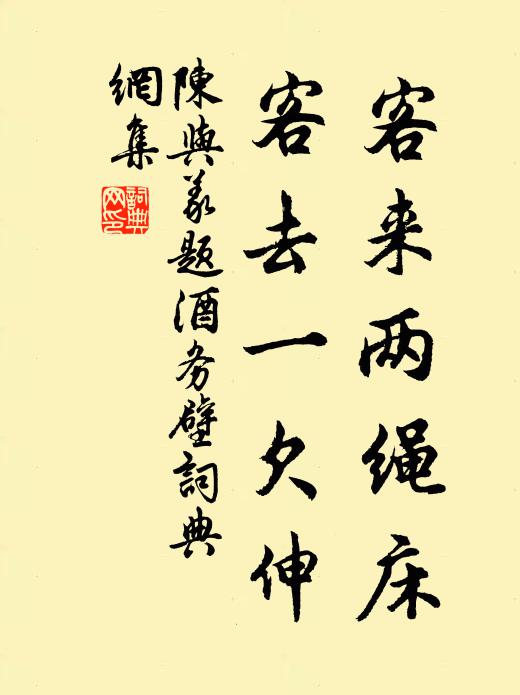 客来两绳床
客去一欠伸
陳與义題酒务壁詞典
網集
詞典
网印